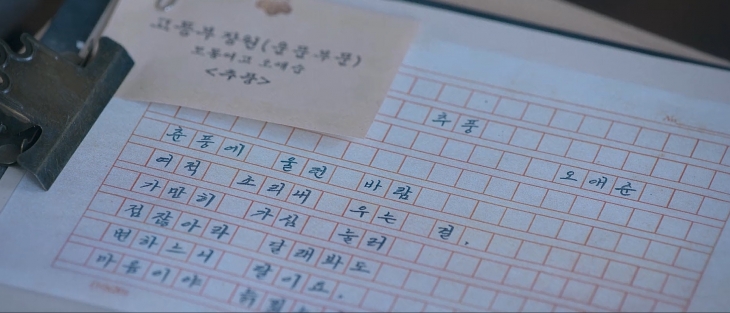 고등부 장원(운문부문)
도동여고 오애순
<추풍>
추풍
오애순
춘풍에 울던 바람
여적 소리내 우는 걸,
가만히 가심 눌러
점잖아라 달래봐도
변하느니 달이요,
마음이야